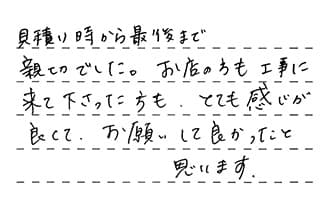 見積り時から最後まで
親切でした。お店の方も工事に
来て下さった方も、とても感じが
良くて、お願いして良かったと
思います。